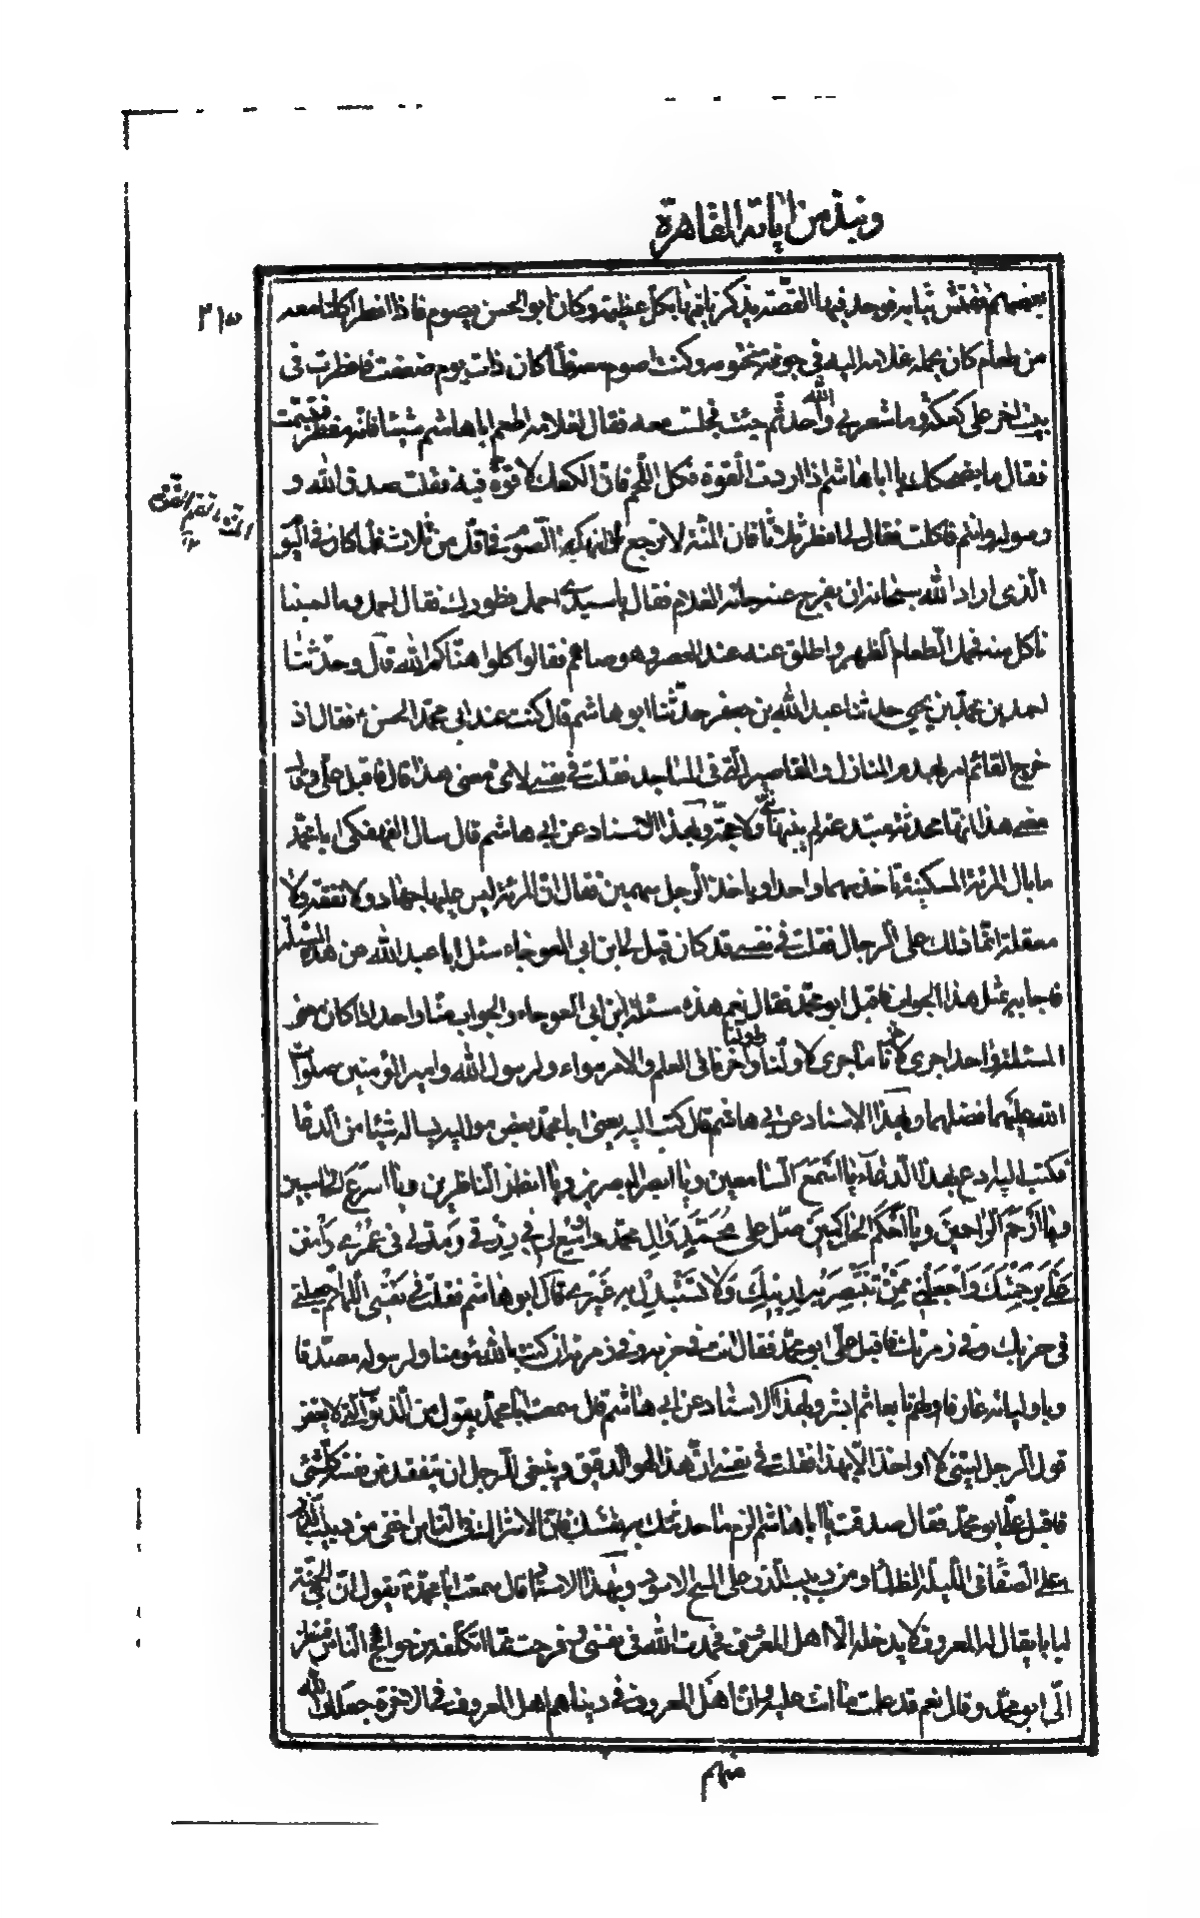 ونبذ من اياته القاهرة
بعضهم ففتش ثيابه فوجد فيها القصة يذكرنا فيها بكل عظيمة وكان ابو الحسن يصوم فاذا افطر اكلنا معه
٣١٥
من طعام كان يحمله غلامه اليه في جونة مختومة وكنت اصوم معه فلما كان ذات يوم ضعفت فافطرت في
بيت اخر على كعكة وما شعر بي والله احد ثم جئت فجلست معه فقال لغلامه اطعم ابا هاشم شيئا فانه مفطر فتبسمت
فقال ما يضحكك يا ابا هاشم اذا اردت القوة فكل اللحم فان الكعك لا قوة فيه فقلت صدق الله و
ورسوله وانتم فاكلت فقال لي افطر ثلاثا فان المنة لا ترجع اذا نهكه الصوم في اقل من ثلاث فلما كان في اليوم
الذي اراد الله سبحانه ان يفرج عنه جائه الغلام فقال يا سيدي احمل فطورك فقال احمل وما احسبنا
ناكل منه فحمل الطعام الظهر واطلق عنه عند العصر وهو صائم فقالوا كلوا هنّاكم الله قال وحدثنا
احمد بن محمد بن يحيى حدثنا عبد الله بن جعفر حدثنا ابو هاشم قال كنت عند ابي محمد الحسن ع فقال اذ
خرج القائم امر بهدم المنار والمقاصير التي في المساجد فقلت في نفسي لاي معنى هذا قال فاقبل علي وقال
معنى هذا انها محدثة مبتدعة لم يبنها نبي ولا حجة وبهذا الاسناد عن ابي هاشم قال سال الفهفكي ابا محمد
ما بال المرئة المسكينة تاخذ سهما واحدا وياخذ الرجل سهمين فقال ان المرئة ليس عليها جهاد ولا نفقة ولا
معقلة انما ذلك على الرجال فقلت في نفسي قد كان قيل لي ابن ابي العوجاء سئل ابا عبد الله عن هذه المسئلة
فاجابه بمثل هذا الجواب فاقبل ابو محمد فقال نعم هذه مسئلة ابن ابي العوجاء والجواب منا واحد اذا كان معنى
المسئلة واحدا جرى لاخرنا ما جرى لاولنا واولنا واخرنا في العلم والامر سواء ولرسول الله وامير المؤمنين صلوات
الله عليهما فضلهما وبهذا الاسناد عن ابي هاشم قال كتب اليه يعني ابا محمد بعض مواليه يساله شيئا من الدعا
فكتب اليه ادع بهذا الدعاء يا اسمع السامعين ويا ابصر المبصرين ويا انظر الناظرين ويا اسرع الحاسبين
ويا ارحم الراحمين ويا احكم الحاكمين صل على محمد وال محمد واوسع لي في رزقي ومد لي في عمري وامنن
علي برحمتك واجعلني ممن تنتصر به لدينك ولا تستبدل به غيري قال ابو هاشم فقلت في نفسي اللهم اجعلني
في حزبك وفي زمرتك فاقبل علي ابو محمد فقال انت في حزبه وفي زمرته ان كنت بالله مؤمنا ولرسوله مصدقا
وباوليائه عارفا ولهم تابعا ثم ابشر وبهذا الاسناد عن ابي هاشم قال سمعت ابا محمد يقول من الذنوب التي لا يغفر
قول الرجل ليتني لا اواخذ الا بهذا فقلت في نفسي ان هذا لهو الدقيق وينبغي للرجل ان يتفقد من نفسه كل شئ
فاقبل علي ابو محمد فقال صدقت يا ابا هاشم الزم ما حدثتك به نفسك فان الاشراك في الناس اخفى من دبيب الذر
على الصفا في الليلة الظلماء ومن دبيب الذر على المسح الاسود وبهذا الاسناد قال سمعت ابا محمد ع يقول ان في الجنة
لبابا يقال له المعروف لا يدخله الا اهل المعروف فحمدت الله في نفسي وفرحت مما اتكلفه من حوائج الناس فنظر
الي ابو محمد وقال نعم قد علمت ما انت عليه وان اهل المعروف في دنياهم اهل المعروف في الاخرة جعلك الله
منهم